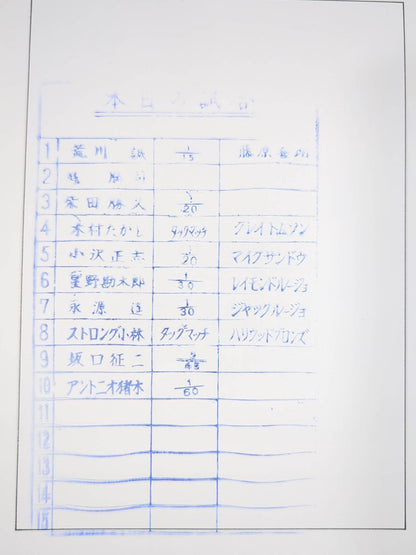 本日の試合
1 荒川 誠 1/15 藤原喜明
2
3 柴田勝久 1/20
4 木村たかし タッグマッチ グレイトムソン
5 小沢正志 1/20 マイクサンドウ
6 星野勘太郎 1/30 レイモンドルージョ
7 永源 遥 1/30 ジャックルージョ
8 ストロング小林 タッグマッチ ハリウッドブロンズ
9 坂口征二
10 アントニオ猪木 1/60
11
12
13
14
15